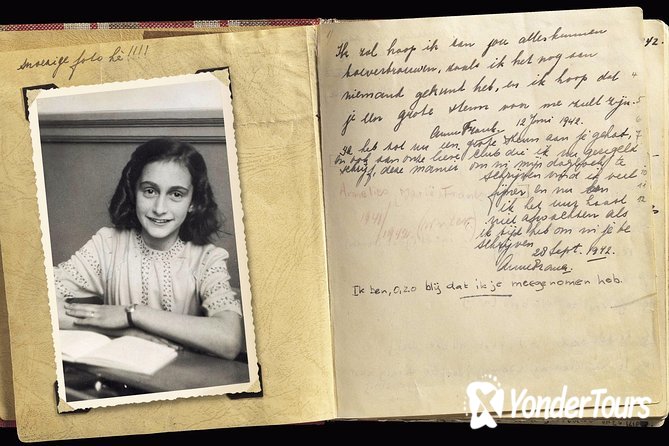 snoezige foto hè!!!!
Ik zal hoop ik aan jou alles kunnen
toevertrouwen, zoals ik het nog aan
niemand gekund heb, en ik hoop dat
je een grote steun voor me zult zijn.
Anne Frank. 12 Juni 1942.
Ik heb tot nu een grote steun aan je gehad,
en ook aan onze lieve club die ik nu geregeld
schrijf, deze manier om in mijn dagboek te
schrijven vind ik veel
fijner en nu kan
ik het uur haast
niet afwachten als
ik tijd heb om in je te
schrijven.
28 Sept. 1942.
Anne Frank.
Ik ben, o, zo blij dat ik je meegenomen heb.
Annelies Marie Frank
42.
YonderTours